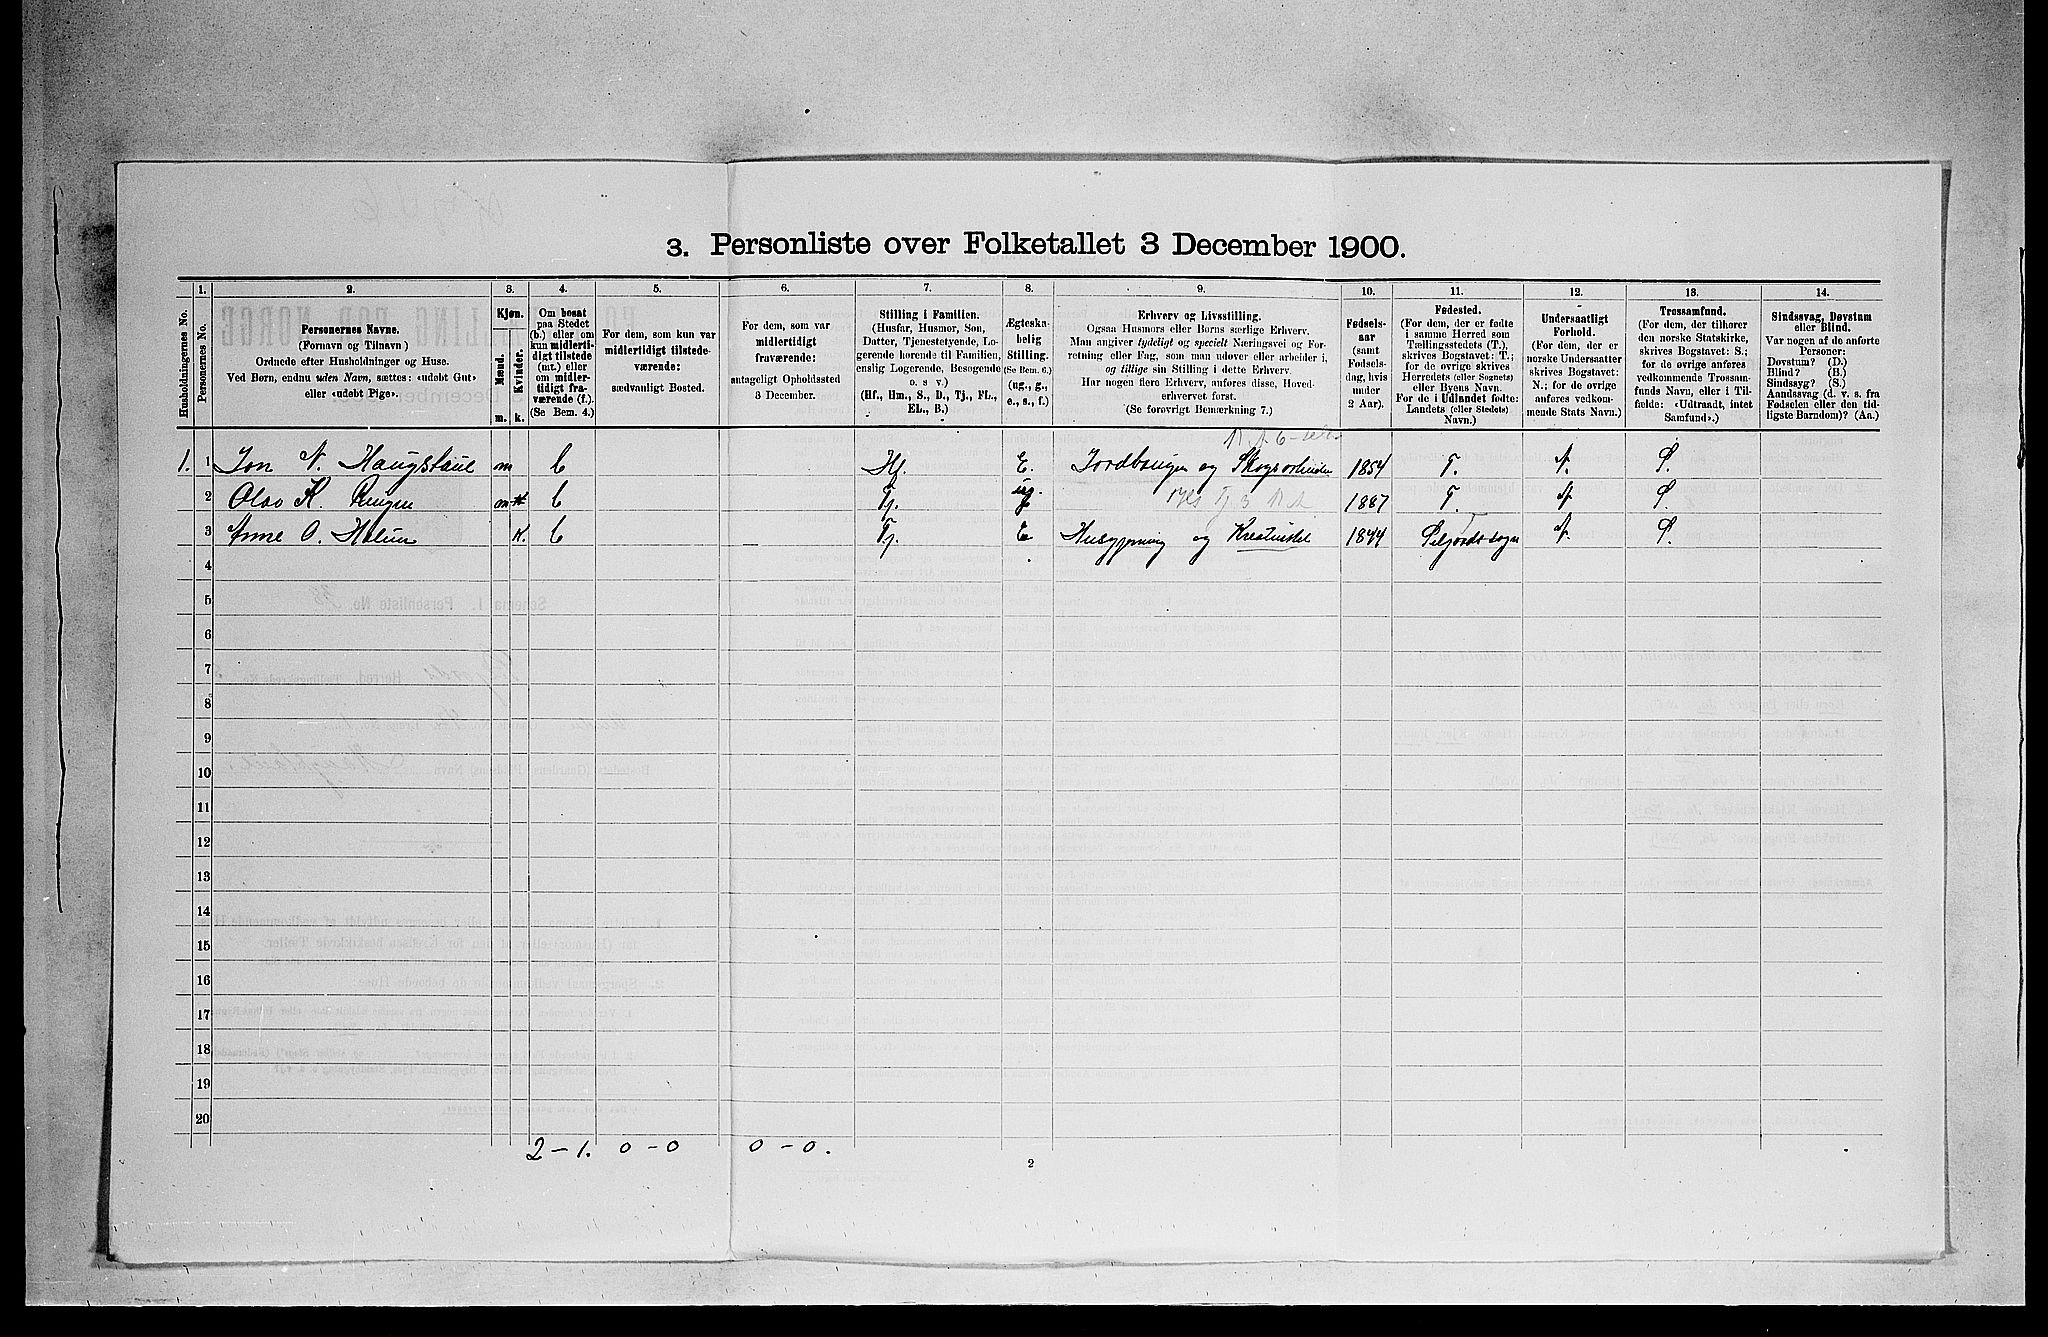 3. Personliste over Folketallet 3 December 1900.
1. 2. 3. 4. 5. 6. 7. 8. 9. 10. 11. 12. 13. 14.
Husholdningernes No.
Personernes No.
Personernes Navne.
(Fornavn og Tilnavn)
Ordnede efter Husholdninger og Huse.
Ved Børn, endnu uden Navn, sættes: «udøbt Gut»
eller «udøbt Pige».
Kjøn.
Mænd.
Kvinder.
m. k.
Om bosat
paa Stedet
(b.) eller om
kun midlerti-
digt tilstede
(mt.) eller
om midler-
tidigt fra-
værende (f.).
(Se Bem. 4.)
For dem, som kun var
midlertidigt tilstede-
værende:
sædvanligt Bosted.
For dem, som var
midlertidigt
fraværende:
antageligt Opholdssted
3 December.
Stilling i Familien.
(Husfar, Husmor, Søn,
Datter, Tjenestetyende, Lo-
gerende hørende til Familien,
enslig Logerende, Besøgende
o. s v.)
(Hf., Hm., S., D., Tj., FL.,
EL., B.)
Ægteska-
belig
Stilling.
(Se Bem. 6.)
(ug., g.,
e., s., f.)
Erhverv og Livsstilling.
Ogsaa Husmors eller Børns særlige Erhverv.
Man angiver tydeligt og specielt Næringsvei og For-
retning eller Fag, som man udøver eller arbeider i,
og tillige sin Stilling i dette Erhverv.
Har nogen flere Erhverv, anføres disse, Hoved-
erhvervet først.
(Se forøvrigt Bemærkning 7.)
Fødsels-
aar
(samt
Fødsels-
dag, hvis
under
2 Aar).
Fødested.
(For dem, der er fødte
i samme Herred som
Tællingsstedets (T.),
skrives Bogstavet: T.;
for de øvrige skrives
Herredets (eller Sognets)
eller Byens Navn.
For de i Udlandet fødte:
Landets (eller Stedets)
Navn.)
Undersaatligt
Forhold.
(For dem, der er
norske Undersaatter
skrives Bogstavet:
N.; for de øvrige
anføres vedkom-
mende Stats Navn.)
Trossamfund.
(For dem, der tilhører
den norske Statskirke,
skrives Bogstavet: S.;
for de øvrige anføres
vedkommende Trossam-
funds Navn, eller i Til-
fælde: «Udtraadt, intet
Samfund».)
Sindssvag, Døvstum
eller Blind.
Var nogen af de anførte
Personer:
Døvstum? (D.)
Blind? (B.)
Sindssyg? (S.)
Aandssvag (d. v. s. fra
Fødselen eller den tid-
ligste Barndom)? (Aa.)
1. 1 Jon N. Haugstaul m b Hf. E. Jordbruger og Skogsarbeider 1854 T. N. S.
2 Olav K. m b Tj. ug. 1887 T. N. S.
3 Anne O. k. b Tj. E og Kreaturstel 1844 Seljords sogn N. S.
4
5
6
7
8
9
10
11
12
13
14
15
16
17
18
19
20
2 – 1. 0 – 0 0 – 0.
2